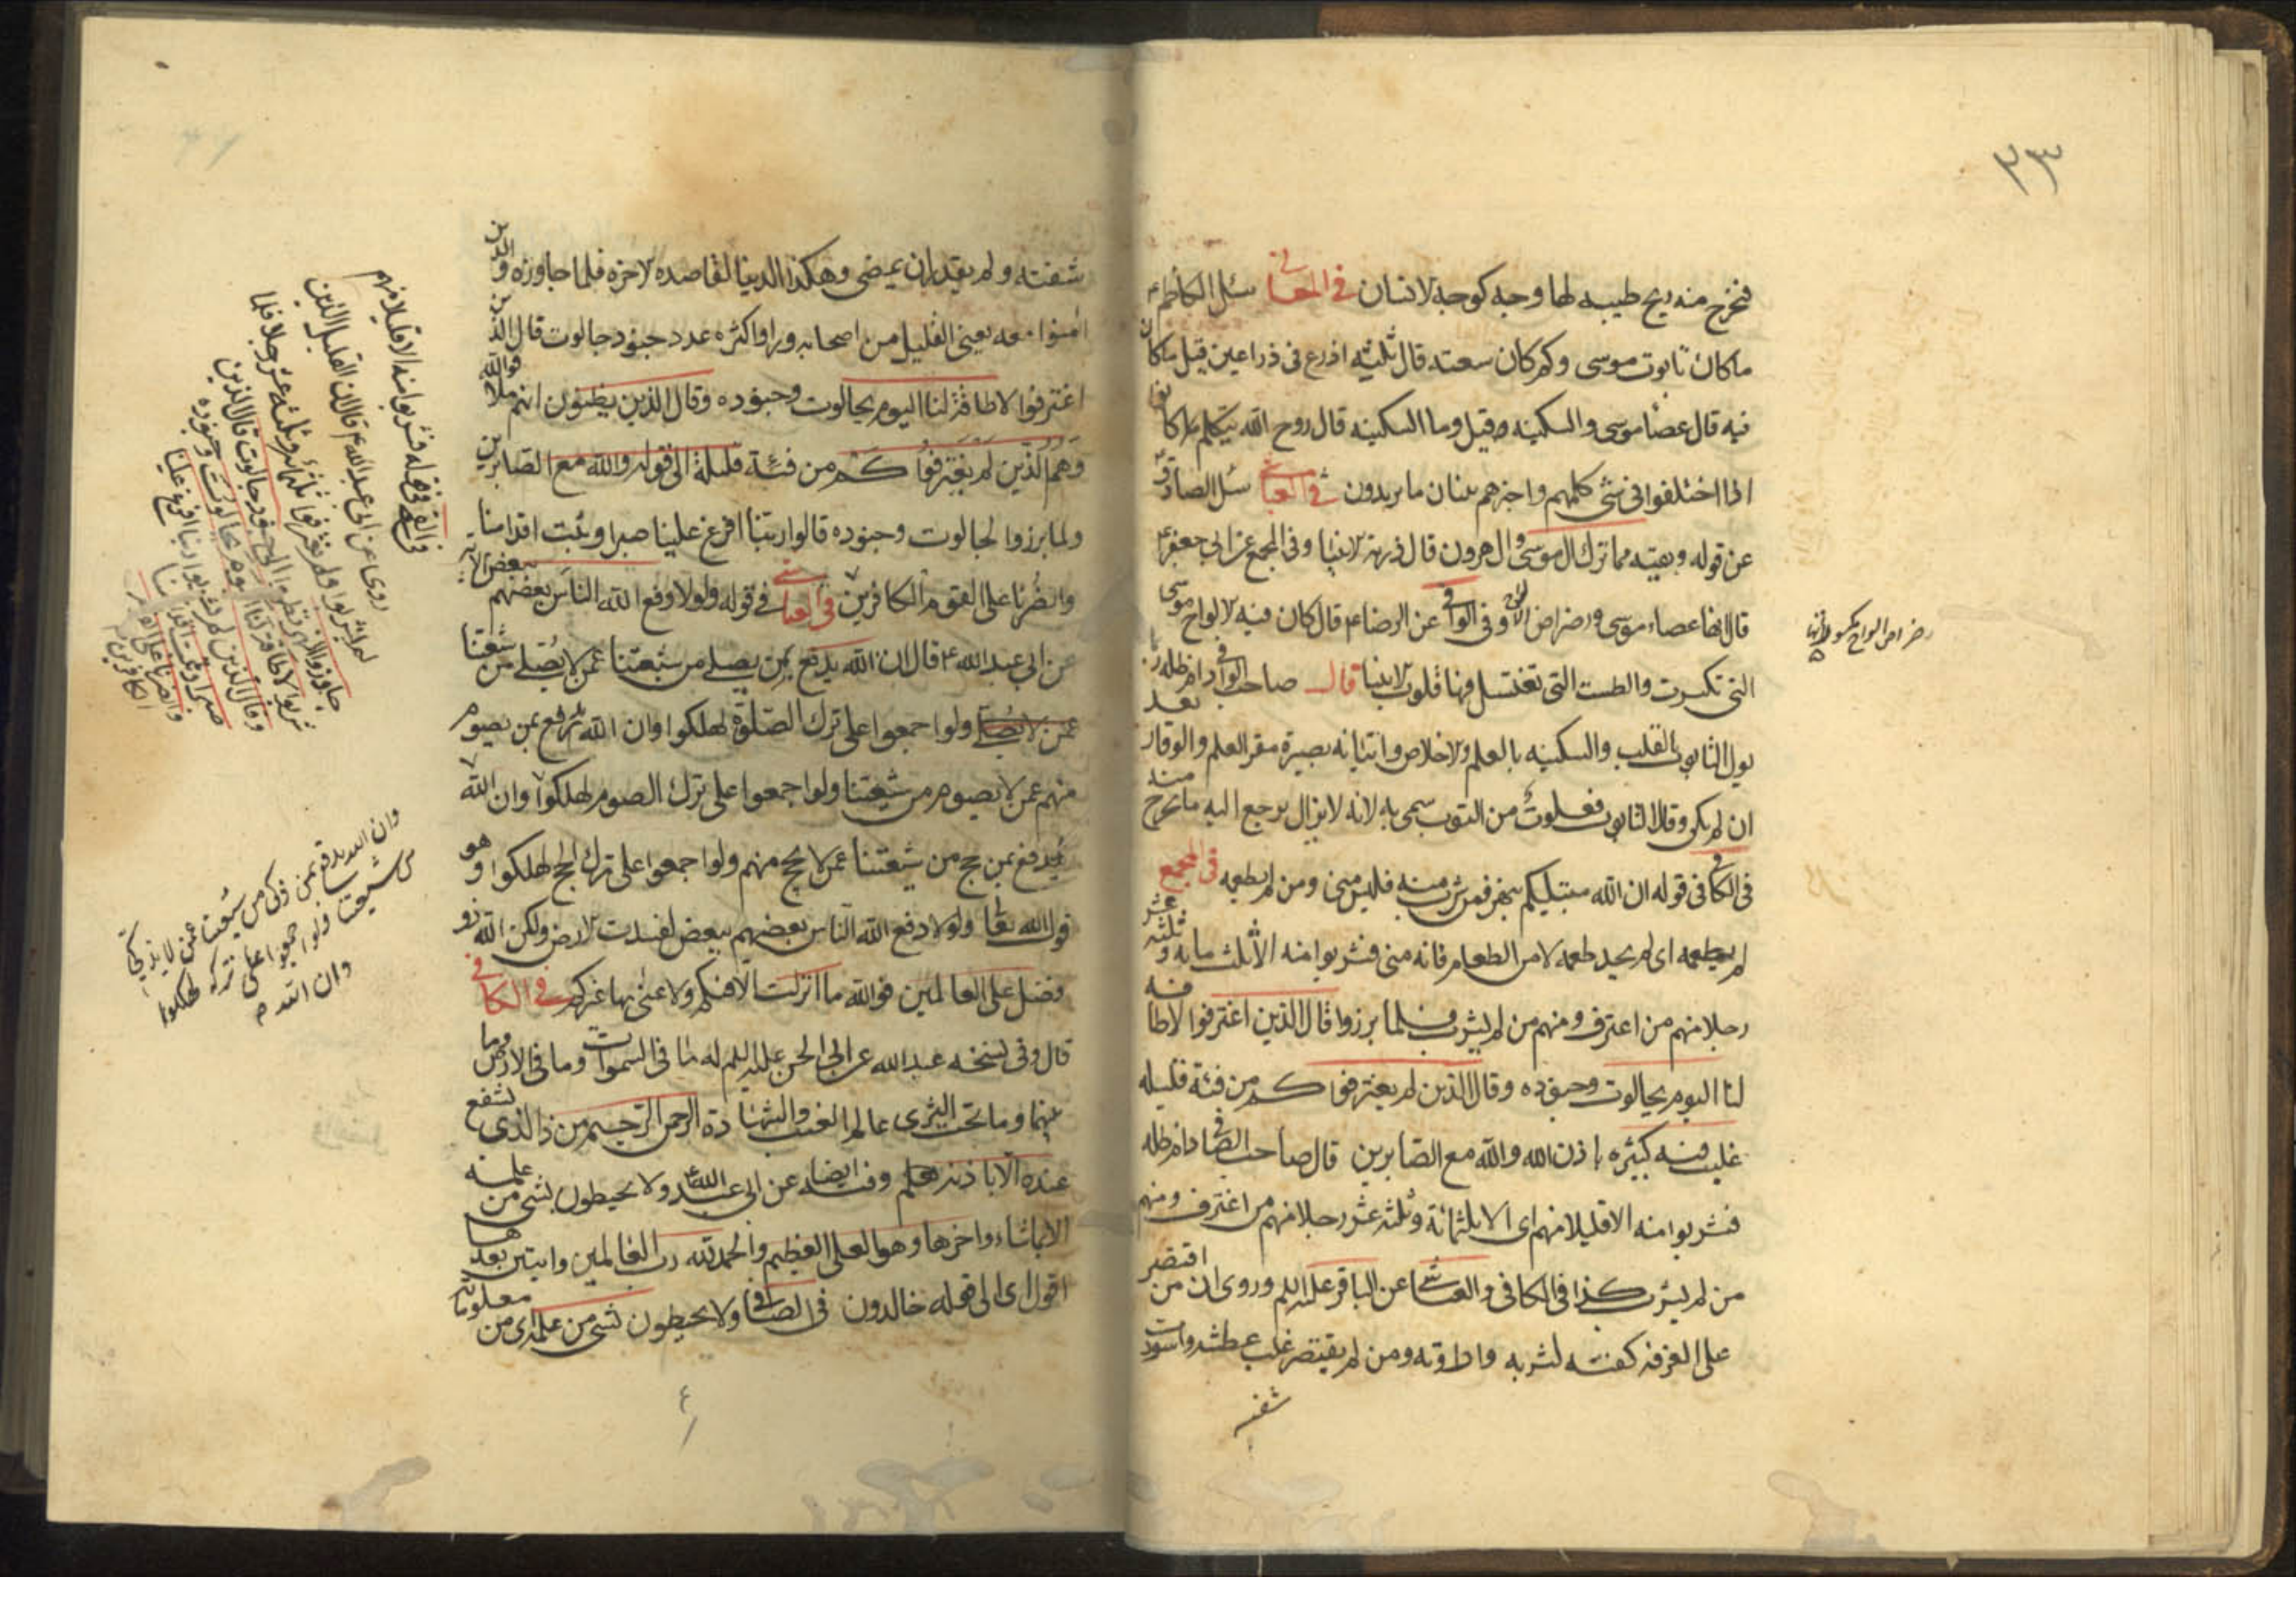 ٣٣
فتخرج منه ريح طيبه لها وجه كوجه لانسان في المعانى سئل الكاظم ع
ما كان تابوت موسى وكم كان سعته قال ثلثه اذرع في ذراعين قيل ما كان
فيه قال عصا موسى والسكينه وقيل وما السكينه قال روح الله يتكلم كانوا
اذا اختلفوا في شئ كلمهم واخبرهم ببيان ما يريدون في العياشى سئل الصادق
عن قوله وبقيه مما ترك ال موسى وال هرون قال ذريه لانبيا وفي المجمع عن ابي جعفر ع
قال انها عصاء موسى ورضراض الالواح وفي الوافى عن الرضا ع قال كان فيه لالواح موسى
التى تكسرت والطست التى تغتسل فيها قلوب لانبيا قال صاحب الوافى دام ظله
بول التابوت بالقلب والسكينه بالعلم ولاخلاص واتيانه بصيرة مقر العلم والوقار بعد
ان لم يكن وقال التابوت فعلوت من التوب سمى به لانه لا يزال يرجع اليه ما يخرج منه
في الكافى في قوله ان الله مبتليكم بنهر فمن شرب منه فليس منى ومن لم يطعمه في المجمع
لم يطعمه اى لم يجد طعمه لا من الطعام فانه منى فشربوا منه الا ثلث مائه وثلثه عشر
رجلا منهم من اغترف ومنهم من لم يشرب فلما برزوا قال الذين اغترفوا لاطاقه
لنا اليوم بجالوت وجنوده وقال الذين لم يغترفوا كم من فئة قليله
غلبت فئه كثيره باذن الله والله مع الصابرين قال صاحب الصافى دام ظله
فشربوا منه الا قليلا منهم اى الا ثلثمائة وثلثه عشر رجلا منهم من اغترف ومنهم
من لم يشرب كذا في الكافى والعياشى عن الباقر عليه السلم وروى ان من اقتصر
على الغرفه كفته لشربه واداوته ومن لم يقتصر غلب عطشه واسودت
شفته
رضراض الواح
شفته ولم يقدر ان يمضى وهكذا الدنيا لقاصده لاخره فلما جاوزه والذين
امنوا معه يعنى القليل من اصحابه وراوا كثره عدد جنود جالوت قال الذين
اغترفوا لاطاقة لنا اليوم بجالوت وجنوده وقال الذين يظنون انهم ملاقوالله
وهم الذين لم يغترفوا كم من فئة قليلة الى قوله والله مع الصابرين
ولما برزوا لجالوت وجنوده قالوا ربنا افرغ علينا صبرا وثبت اقدامنا
وانصرنا على القوم الكافرين في العياشى في قوله ولولا دفع الله الناس بعضهم ببعض الايه
عن ابي عبد الله ع قال ان الله يدفع بمن يصلى من شيعتنا عمن لا يصلى من شيعتنا
عمن لا يصلى ولو اجمعوا على ترك الصلوة لهلكوا وان الله يدفع بمن يصوم
منهم عمن لا يصوم من شيعتنا ولو اجمعوا على ترك الصوم لهلكوا وان الله
يدفع بمن حج من شيعتنا عمن لا يحج منهم ولو اجمعوا على ترك الحج لهلكوا وهو
قول الله تعا ولولا دفع الله الناس بعضهم ببعض لفسدت لارض ولكن الله ذو
فضل على العالمين فوالله ما انزلت الا فيكم ولا عنى بها غيركم في الكافى
قال وفي نسخه عبد الله عن ابي الحسن عليه السلم له ما في السموات وما في الارض وما
بينهما وما تحت الثرى عالم الغيب والشهادة الرحمن الرحيم من ذا الذى يشفع
عنده الا باذنه يعلم وفيه ايضا عن ابي عبد الله ع ولا يحيطون بشئ من علمه
الا بما شاء واخرها وهو العلى العظيم والحمدلله رب العالمين وايتين بعدها
اقول اى الى قوله خالدون في الصافى ولا يحيطون بشئ من علمه اى من معلوماته
في القمى في قوله فشربوا منه الا قليلا منهم
روى عن ابي عبد الله ع قال ان القليل الذين
لم يشربوا ولم يغترفوا ثلثمائه وثلثه عشر رجلا فلما
جاوزوا النهر ونظروا الى جنود جالوت قال الذين
شربوا لاطاقه لنا اليوم بجالوت وجنوده
وقال الذين لم يشربوا ربنا افرغ علينا
صبرا وثبت اقدامنا
وانصرنا على القوم
الكافرين
وان الله يدفع بمن يزكى من شيعتنا عمن لا يزكى
من شيعتنا ولو اجمعوا على تركه لهلكوا
وان الله